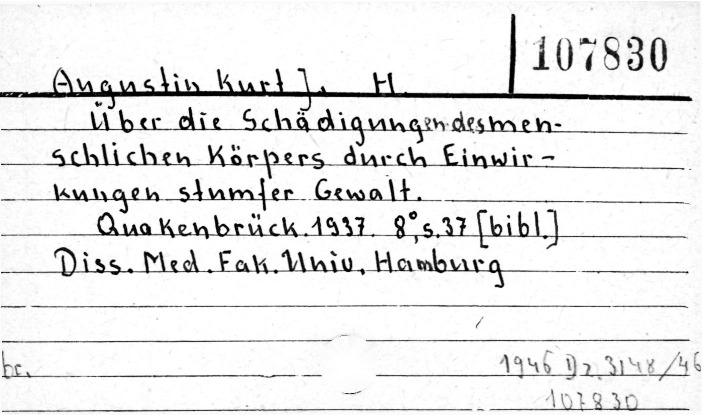 107830
Augustin Kurt J. H.
Über die Schädigungen des men-
schlichen Körpers durch Einwir-
kungen stumfer Gewalt.
Quakenbrück. 1937. 8°, s. 37 [bibl.]
Diss. Med. Fak. Univ. Hamburg
br.
1946 Dz. 3148/46
107830